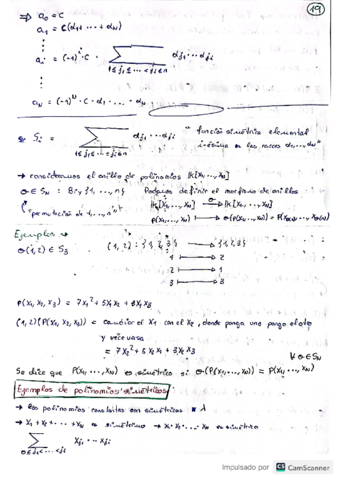 19
⇒ a₀ = C
a₁ = C(α₁+ ... + αₙ)
⋮
aᵢ = (-1)ⁱ · C · ∑ αj₁ ... αjᵢ
1≤j₁≤...<jᵢ≤n
⋮
aₙ = (-1)ᴺ · C · α₁ · ... · αₙ
Sᵢ = ∑ αj₁ ... αjᵢ "función simétrica elemental
1≤j₁≤...≤jᵢ≤n en las raíces α₁,...,αₙ"
→ consideramos el anillo de polinomios K[x₁,...,xₙ]
σ ∈ Sₙ : Biy {1, ..., n} Podemos definir el morfismo de anillos
("permutación de 1,...,n") K[x₁,...,xₙ] → K[x₁,...,xₙ]
p(x₁,...,xₙ) → σ(p(x₁,...,xₙ)) =
Ejemplos →
σ(1,2) ∈ S₃ (1,2) : {1,2,3} → {1,2,3}
1 → 2
2 → 1
3 → 3
P(x₁, x₂, x₃) = 7x₁² + 5x₁x₂ + 8x₁x₃
(1,2)(P(x₁, x₂, x₃)) = cambiar el x₁ con el x₂, donde ponga uno pongo el otro
y viceversa
= 7x₂² + 5x₂x₁ + 8x₂x₃
∀σ∈Sₙ
Se dice que P(x₁,...,xₙ) es simétrico si σ(P(x₁,...,xₙ)) = P(x₁,...,xₙ)
Ejemplos de polinomios simétricos
→ Los polinomios constantes son simétricos λ
→ x₁ + x₂ + ... + xₙ es simétrico → x₁·x₂·...·xₙ es simétrico
∑ xj₁ ... xjᵢ
0≤j₁<...<jᵢ
Impulsado por CS CamScanner